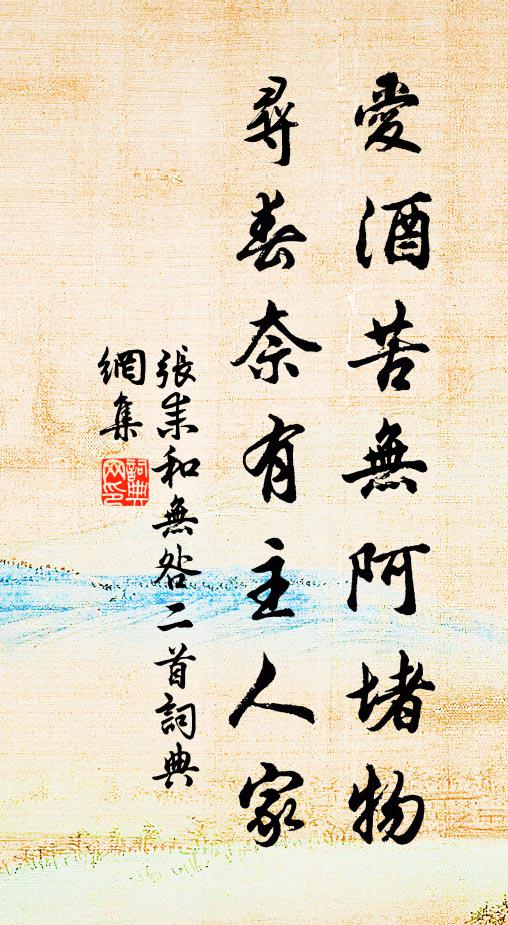 愛酒苦無阿堵物
尋春奈有主人家
張耒和無咎二首詞典
網集
詞典網印